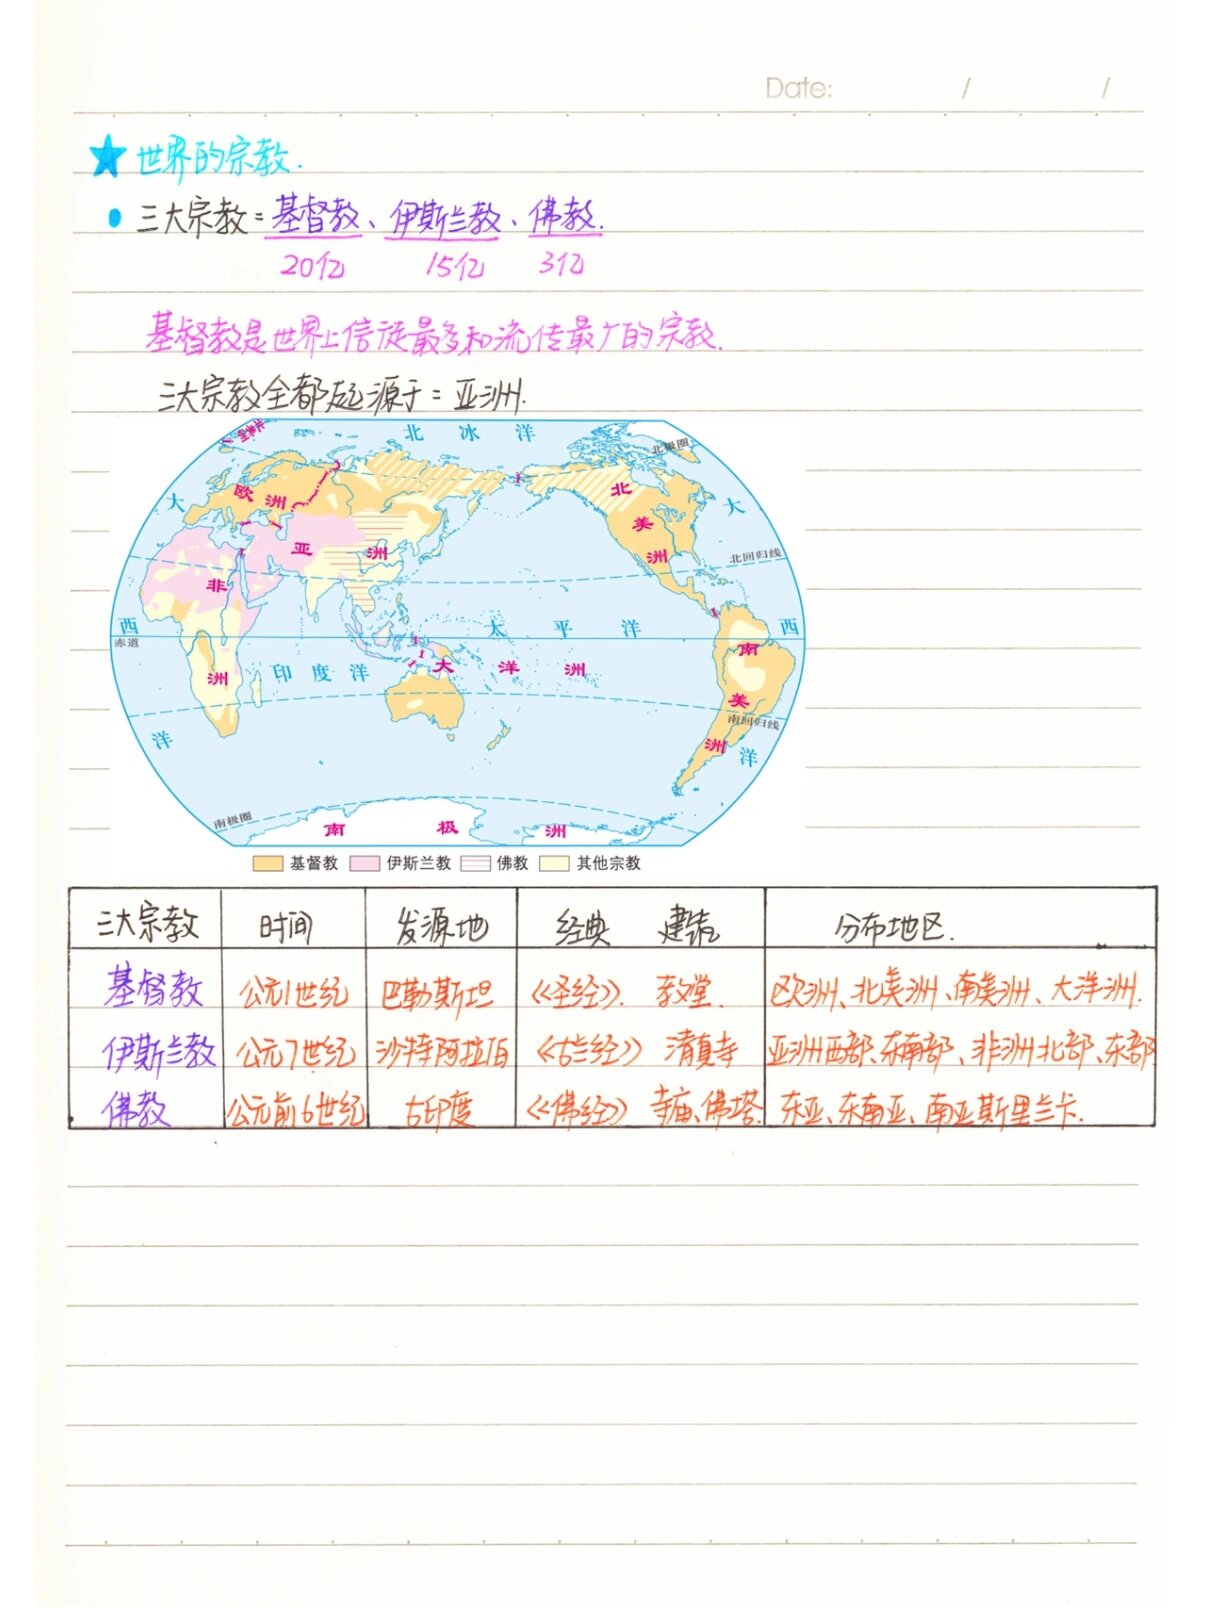 Date: / /
★世界的宗教.
三大宗教=基督教、伊斯兰教、佛教.
20亿 15亿 3亿
基督教是世界上信徒最多和流传最广的宗教.
三大宗教全都起源于=亚洲.
北冰洋
北极圈
欧洲
北美洲
大 大
亚洲
北回归线
非洲
西 太平洋 西
赤道
南美洲
印度洋 大洋洲
南回归线
洋 洋
南极圈
南极洲
基督教 伊斯兰教 佛教 其他宗教
三大宗教 时间 发源地 经典 建筑 分布地区.
基督教 公元1世纪 巴勒斯坦 《圣经》. 教堂. 欧洲、北美洲、南美洲、大洋洲.
伊斯兰教 公元7世纪 沙特阿拉伯 《古兰经》 清真寺 亚洲西部、东南部、非洲北部、东部
佛教 公元前6世纪 古印度 《佛经》 寺庙、佛塔. 东亚、东南亚、南亚斯里兰卡.